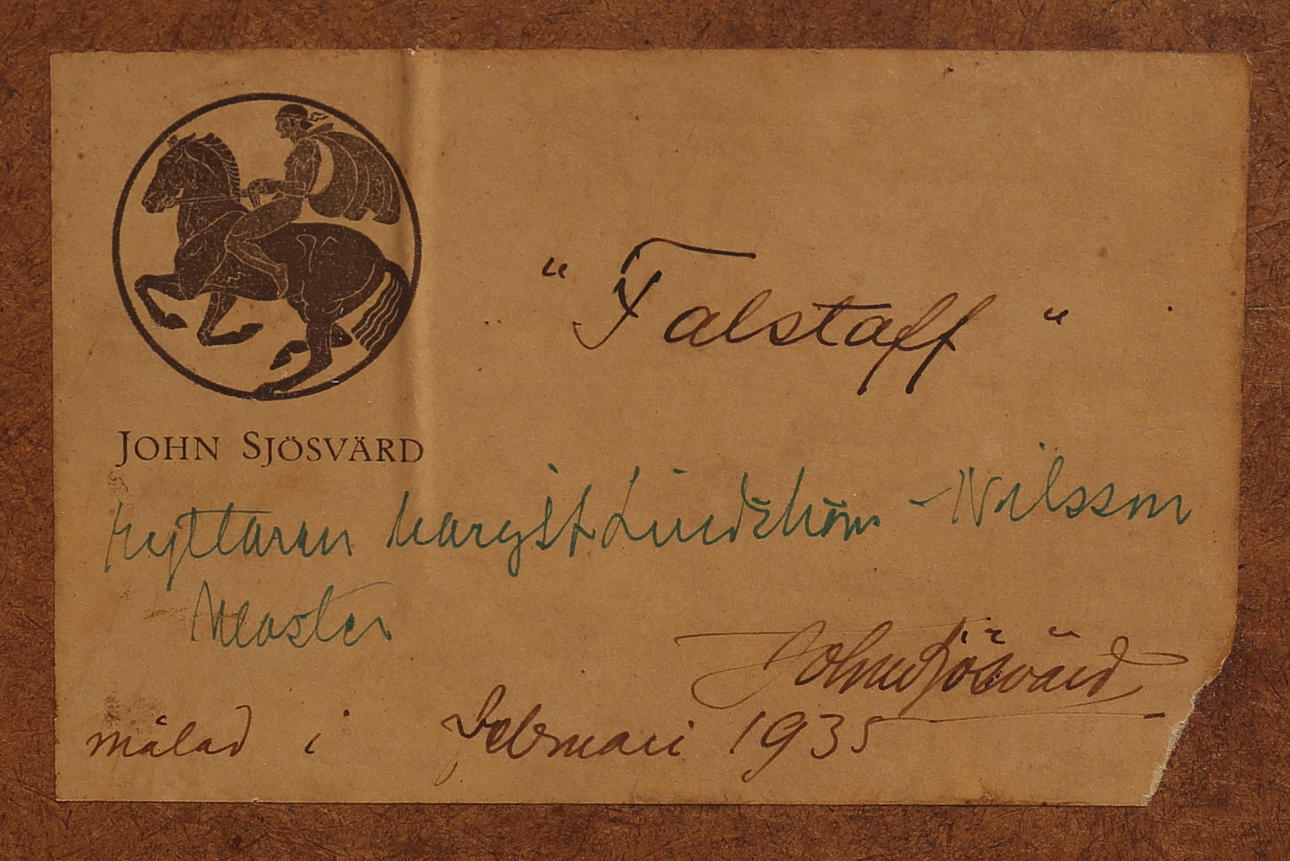 JOHN SJÖSVÄRD
"Falstaff"
Ryttaren Margit Lindström - Nilsson
Master
John Sjösvärd
målad i februari 1935